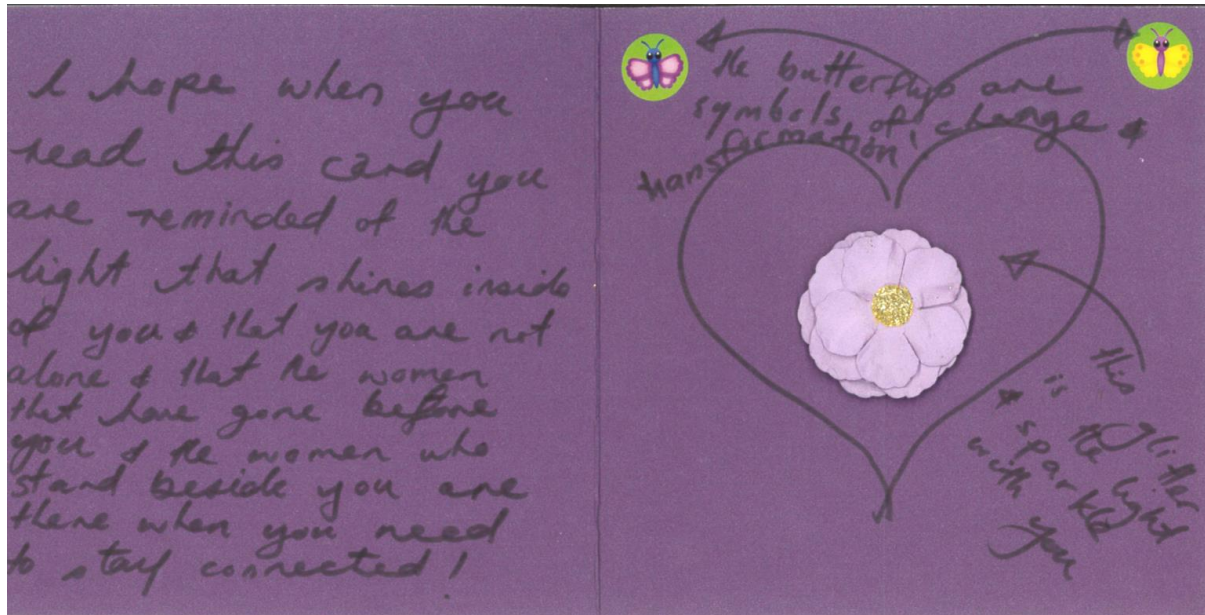 I hope when you
read this card you
are reminded of the
light that shines inside
of you & that you are not
alone & that the women
that have gone before
you & the women who
stand beside you are
there when you need
to stay connected!
the butterflys are
symbols of 'change &
transformation'
this glitter
is the light
& sparkle
with you